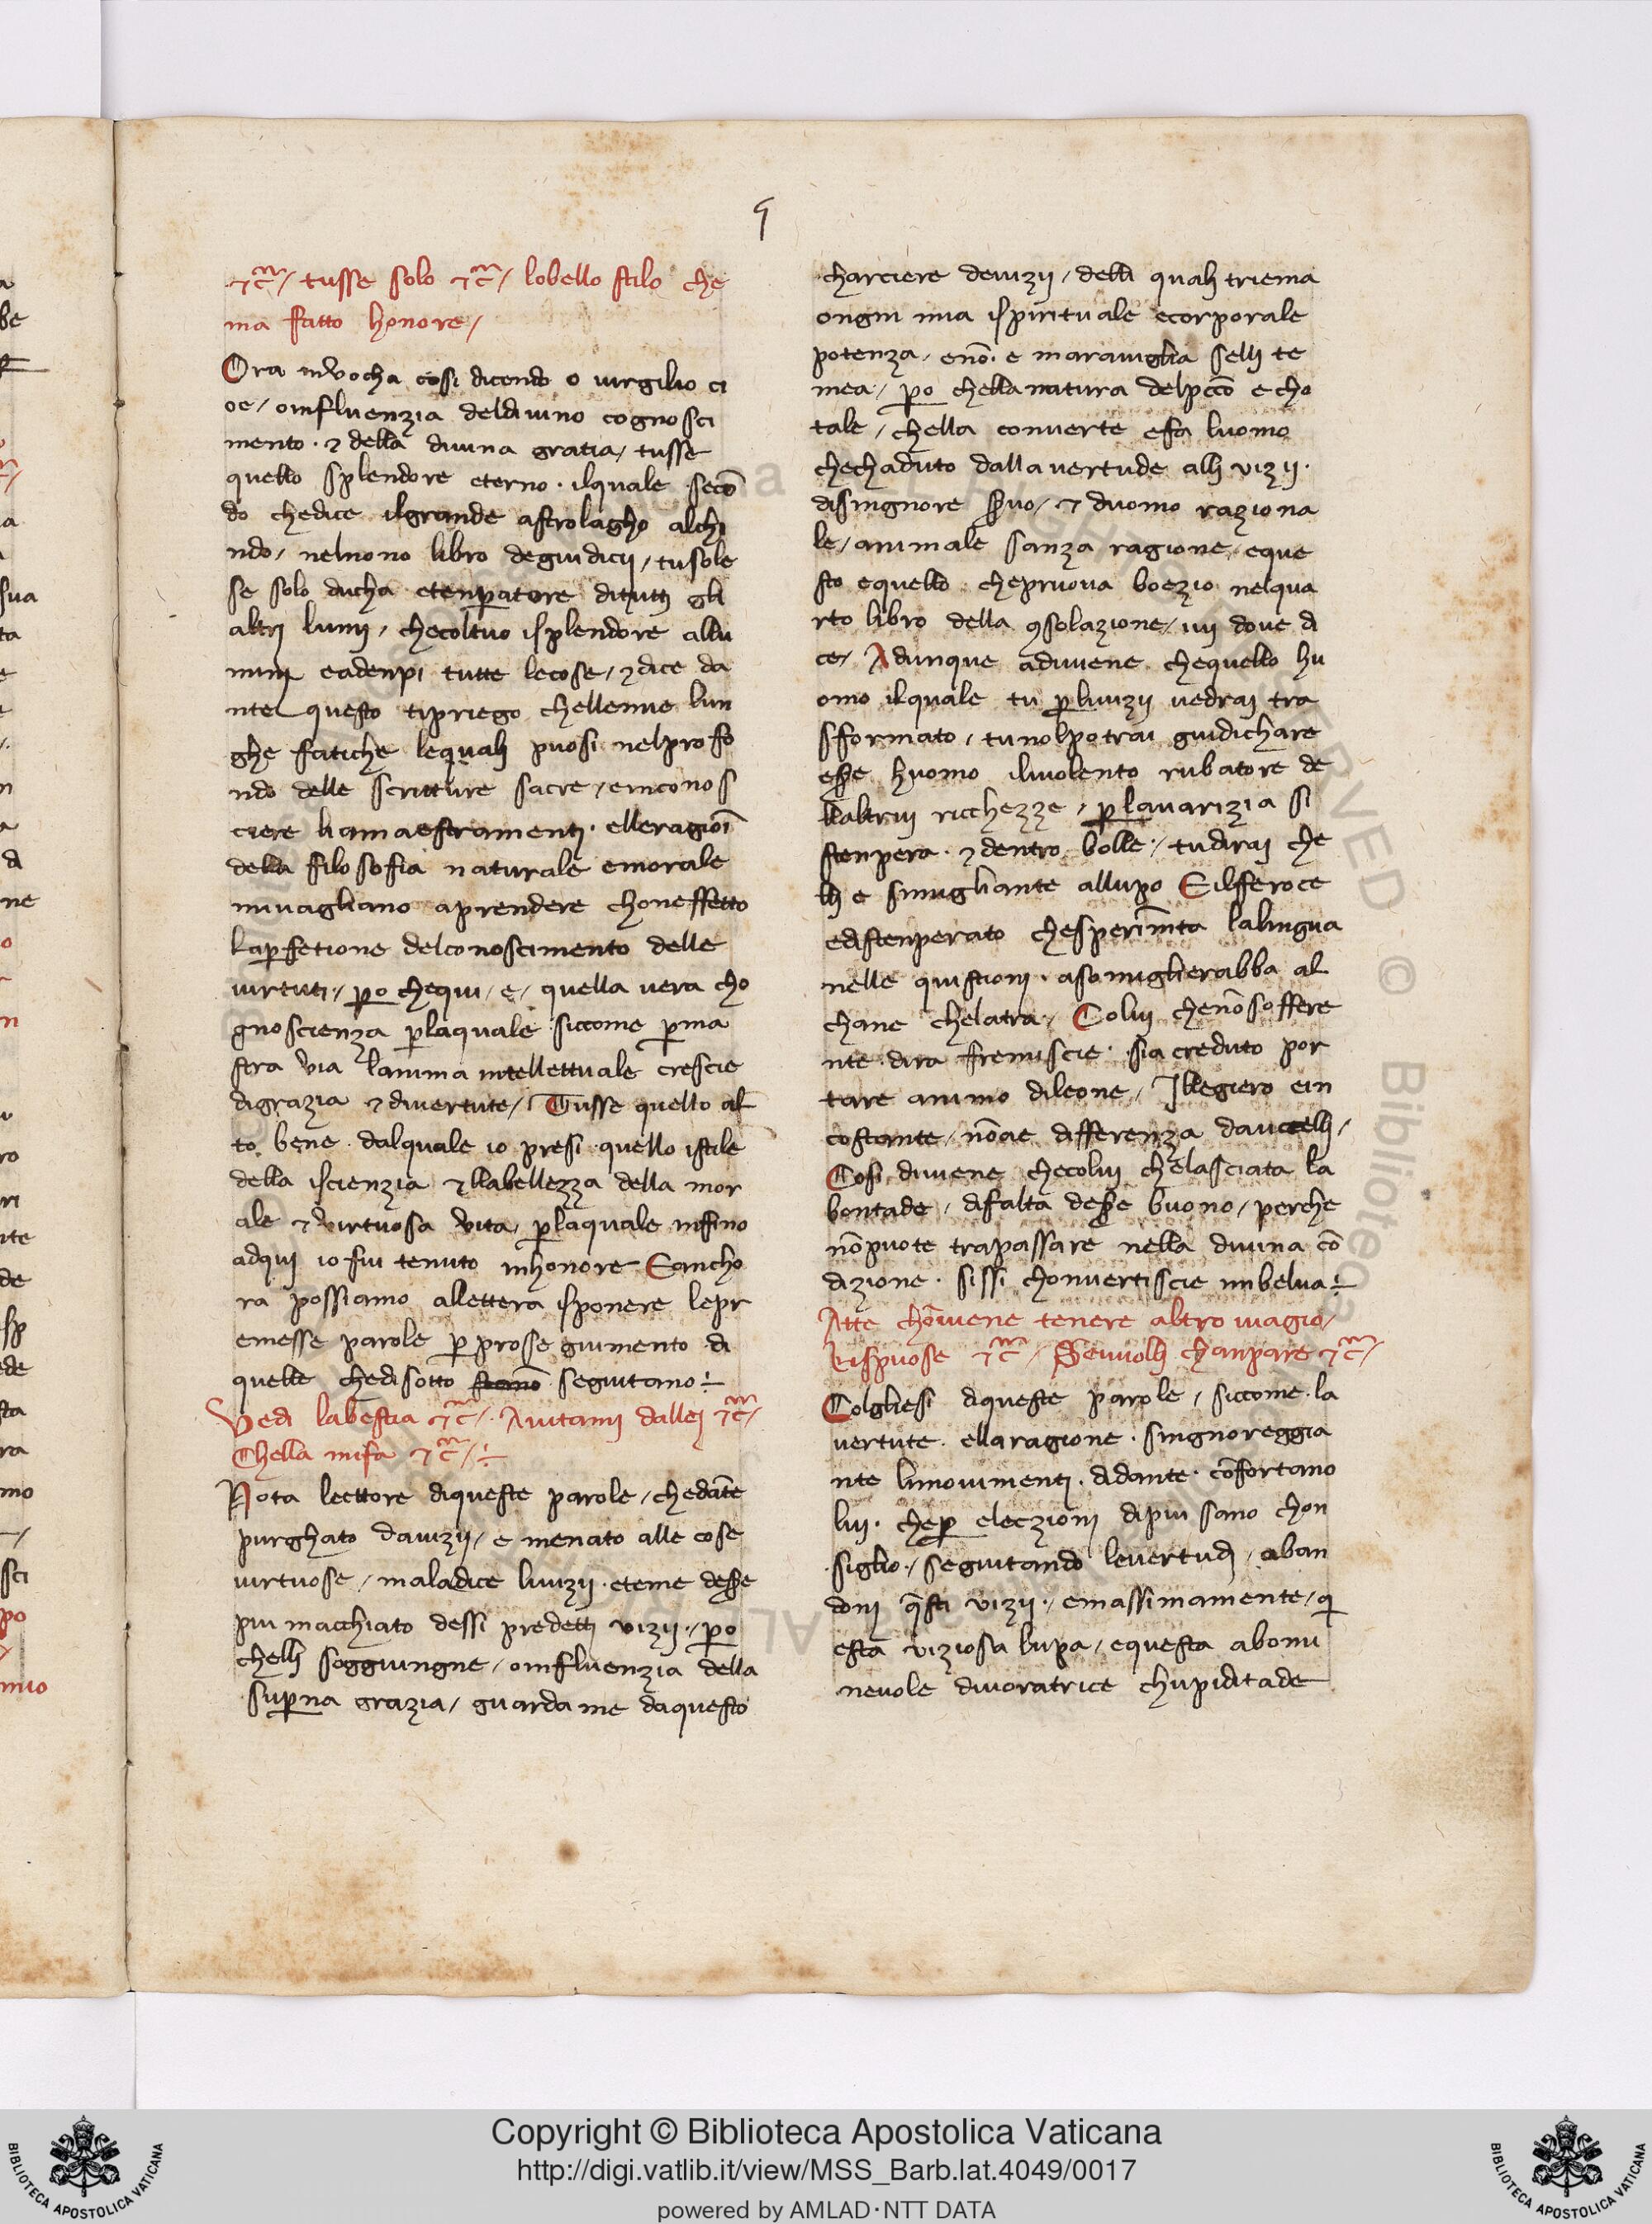 9
⁊cͣ/ tusse solo ⁊cͣ/ lobello stilo che
ma fatto honore/
Ora invocha cosi dicendo o virgilio ci
oe/ oinfluenzia deldivino cognosci
mento · ⁊ della divina gratia/ tusse
quello splendore eterno · ilquale secō
do chedice ilgrande astrolagho alchi
ndo/ nelnono libro degiudicij/ tusole
se solo ducha etenperatore ditutti gli
altri lumi/ checoltuo isplendore allu
mini eadenpi tutte lecose/ ⁊dice da
nte questo tipriego chellemie lun
ghe fatiche lequali puosi nelprofo
ndo delle scritture sacre/ einconos
ciere liamaestramenti · elleragioī
della filosofia naturale emorale
mivagliano aprendere choneffetto
laperfetione delconoscimento delle
virtuti/ pero chequi/ e/ quella vera cho
gnoscienza perlaquale siccome perma
stra via lanima intellettuale crescie
digrazia ⁊ divertute/ Tusse quello al
to bene · dalquale io presi quello istile
della iscienzia ⁊llabellezza della mor
ale ⁊ virtuosa vita/ perlaquale infino
adqui io fui tenuto inhonore Eancho
ra possiamo allettera isponere lepr
emesse parole per prosseguimento di
quelle chedisotto seguitano÷
Vedi labestia ⁊cͣ/ · Aiutami dallei ⁊cͣ/
Chella mifa ⁊cͣ/ ÷
Nota leettore diqueste parole/ chedāte
purghato davizij/ e menato alle cose
virtuose/ maladice livizij · eteme desse
piu macchiato dessi predetti vizij · / pero
chelli soggiungne/ oinfluenzia della
superna grazia/ guarda me daquesto
charciere devizij/ delli quali triema
ongni mia ispirituale ecorporale
potenza/ enō · e maraviglia selli te
mea/ pero chella natura delpccō e cho
tale/ chella converte efa luomo
chechaduto dalla vertude alli vizij ·
disingnore servo/ ⁊ duomo raziona
le/ animale sanza ragione/ eque
sto equello cheprvova boezio nelqua
rto libro della 9solazione/ ivi dove di
ce/ Adunque adivene chequello hu
omo ilquale tu perlivizij vedrai tra
sformato/ tunolpotrai guidichare
esse huomo ilviolento rubatore de
llaltrui ricchezze/ perlavarizia si
stenpera · ⁊ dentro bolle/ tudirai che
lli e simigliante allupo Eilfferoce
edistenperato chesperimīta lalingua
nelle quistioni · asomiglierabba al
chane chelatra/ Colui chenōsoffere
nte dira fremiscie · sia creduto por
tare animo dileone/ Illegiero ein
costante/ nōae differenza dauccelli/
Cosi diviene checolui chelasciata la
bontade/ difalta desse buono/ perche
nōpuote trapassare nella divina cō
dizione · sissi chonvertiscie inbelva÷
Atte chōviene tenere altro viagio/
Rispuose ⁊cͣ/ Sevuolli chanpare ⁊cͣ/
Colgliesi diqueste parole/ siccome · la
vertute · ellaragione · singnoreggia
nte limovimenti · didante · cōfortano
lui · cheper eleczioni dipiu sano chon
siglio · / seguitando levertudi/ aban
doni q̄sti vizij · / emassimamente/ qi
esta viziosa lupa/ equesta abomi
nevole divoratrice chupiditade
Copyright © Biblioteca Apostolica Vaticana
http://digi.vatlib.it/view/MSS_Barb.lat.4049/0017
powered by AMLAD·NTT DATA
BIBLIOTECA APOSTOLICA VATICANA
BIBLIOTECA APOSTOLICA VATICANA